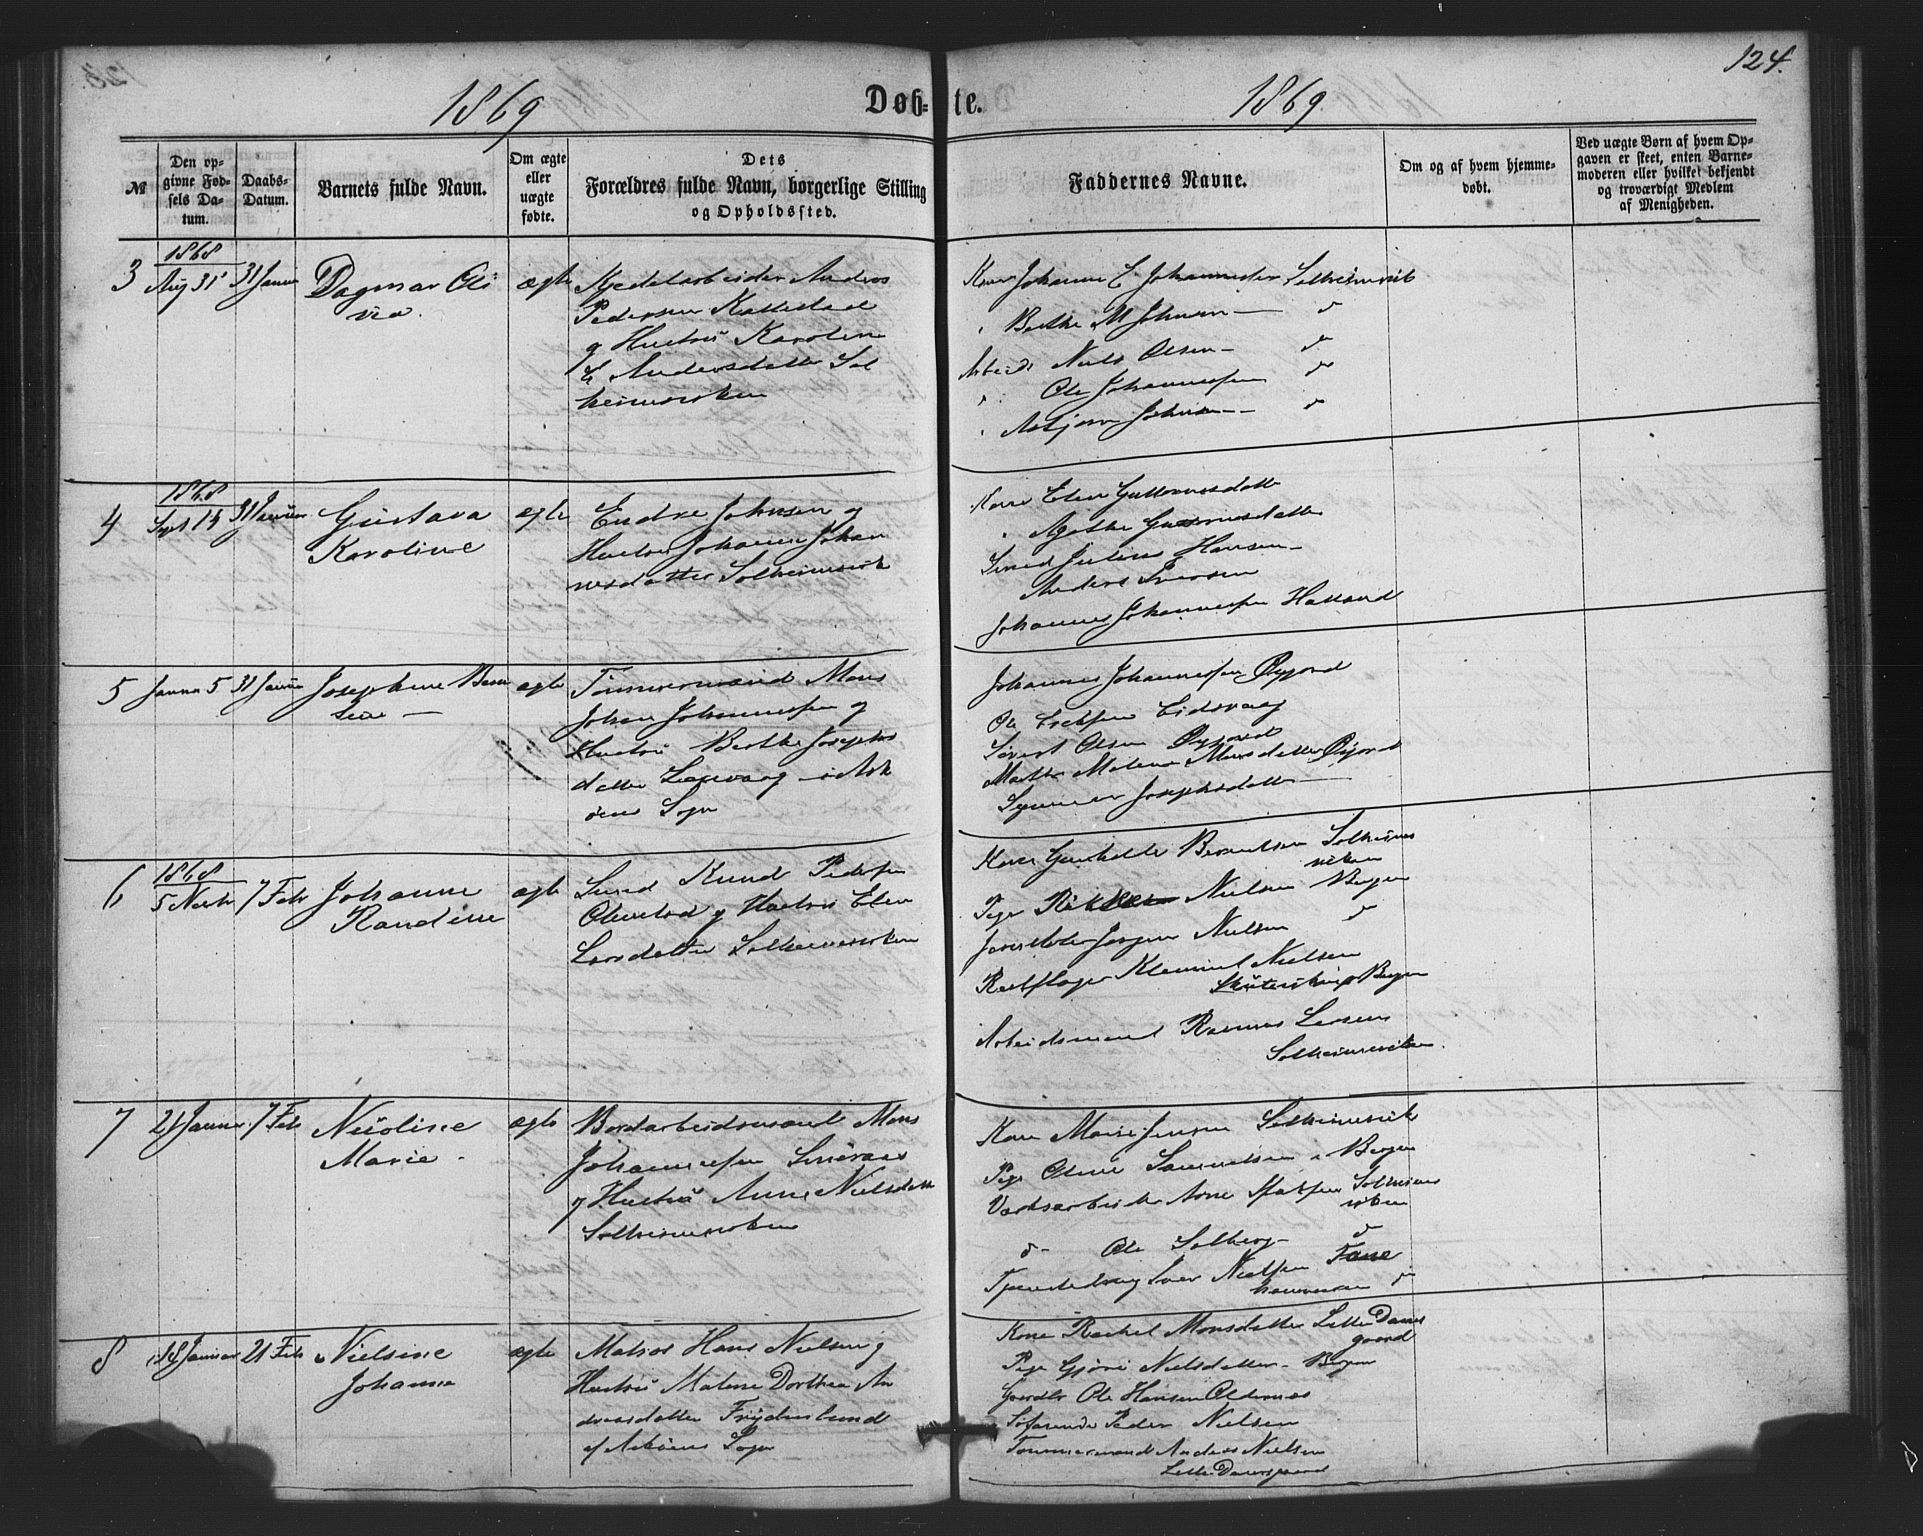 124.
1869
Døb-
te.
1869.
№
Den op-
givne Fød-
sels Da-
tum.
Daabs-
Datum.
Barnets fulde Navn.
Om ægte
eller
uægte
fødte.
Dets
Forældres fulde Navn, borgerlige Stilling
og Opholdssted.
Faddernes Navne.
Om og af hvem hjemme-
døbt.
Ved uægte Børn af hvem Op-
gaven er skeet, enten Barne-
moderen eller hvilket bekjendt
og troværdigt Medlem
af Menigheden.
3
1868
Aug 31
31 Janu
Dagmar Oli
via.
ægte
Kjedelarbeider Anders
Pedersen
g Hustru Karoline
E Andersdatter Sol
heimsviken
Kone Johanne E Johannesdtr Solheimsvik
Berthe M Johnsen — d
Arbeid: Niels Olsen — d
Ole Johannessen d
Asbjørn Johnsen — d
4
1868
Sept 14
31 Januar
Gustava
Karoline
ægte
Endre Johnsen og
Hustru Johanne Johan
nesdatter Solheimsvik
Kone Elen Guttormsdatter
Agathe
Smed Julius Hansen —
Anders Iversen
Johannes Johannessen Hatland
5
Janua 5
31 Janua
Josephine Bern
tine —
ægte
Tømmermand Mons
Johan Johannessen og
Hustru Berthe Josephs
datter i Ask
øens Sogn
Johannes Johannessen Øygard
Ole Erichsen Eidsvaag
Sivert Olsen Øygard
Martha Malena Monsdatter Øigard
Josephsdatter —
6
1868
5 Novbr
7 Febr
Johanne
Randine
ægte
Smed Knud Pedersen
g Hustru Elen
Larsdatter Solheimsviken
Kone Gunhilde Berentsen Solheims
viken
Pige Rikke Nielsen Bergen
Jørgen Nielsen d
Reebslager Klement Nielsen
Bergen
Arbeidsmand Rasmus Larsen
Solheimsviken.
7
21 Januar.
7 Feb
Nicoline
Marie.
ægte
Bordarbeidsmand Mons
Johannessen
g Hustru Anne Nielsdatt
Solheimsviken
Kone Marie Jensen Solheimsvik
Pige Oline Samuelsen Bergen
Værksarbeider Arne Solheims
viken
d- Ole Solberg- d
Tjenestedreng Iver Nielsen Fane
d
8
18 Januar
21 Feb
Nielsine
Johanne
ægte
Matros Hans Nielsen g
Hustru Malene Dorthea An
dreasdatter Frydenlund
af Askøens Sogn
Kone Rachel Monsdatter Lille Dams
gaard
Pige Gjøri Nielsdatter — Bergen
Gaardbr Ole Hansen Oldernes
Søfarende Peder Nielsen
Tømmermand Anders Nielsen
Lille Damsgaard